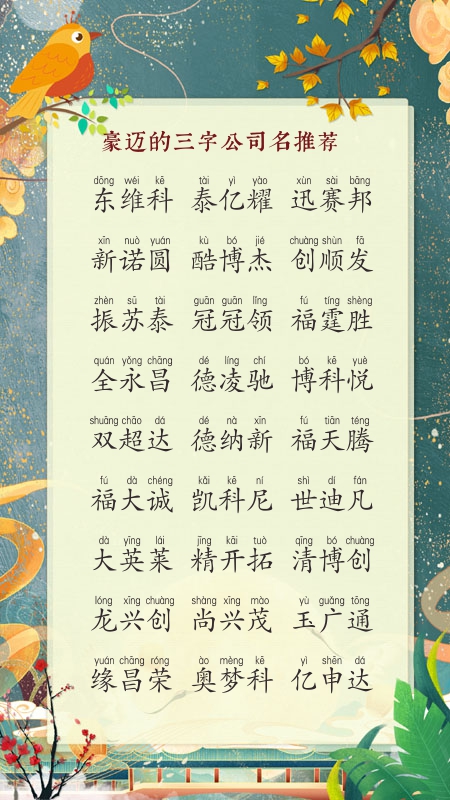 豪迈的三字公司名推荐
dōng wéi kē tài yì yào xùn sài bāng
东维科 泰亿耀 迅赛邦
xīn nuò yuán kù bó jié chuàng shùn fā
新诺圆 酷博杰 创顺发
zhèn sū tài guān guān lǐng fú tíng shèng
振苏泰 冠冠领 福霆胜
quán yǒng chāng dé líng chí bó kē yuè
全永昌 德凌驰 博科悦
shuāng chāo dá dé nà xīn fú tiān téng
双超达 德纳新 福天腾
fú dà chéng kǎi kē ní shì dí fán
福大诚 凯科尼 世迪凡
dà yīng lái jīng kāi tuò qīng bó chuàng
大英莱 精开拓 清博创
lóng xīng chuàng shàng xīng mào yù guǎng tōng
龙兴创 尚兴茂 玉广通
yuán chāng róng ào mèng kē yì shēn dá
缘昌荣 奥梦科 亿申达